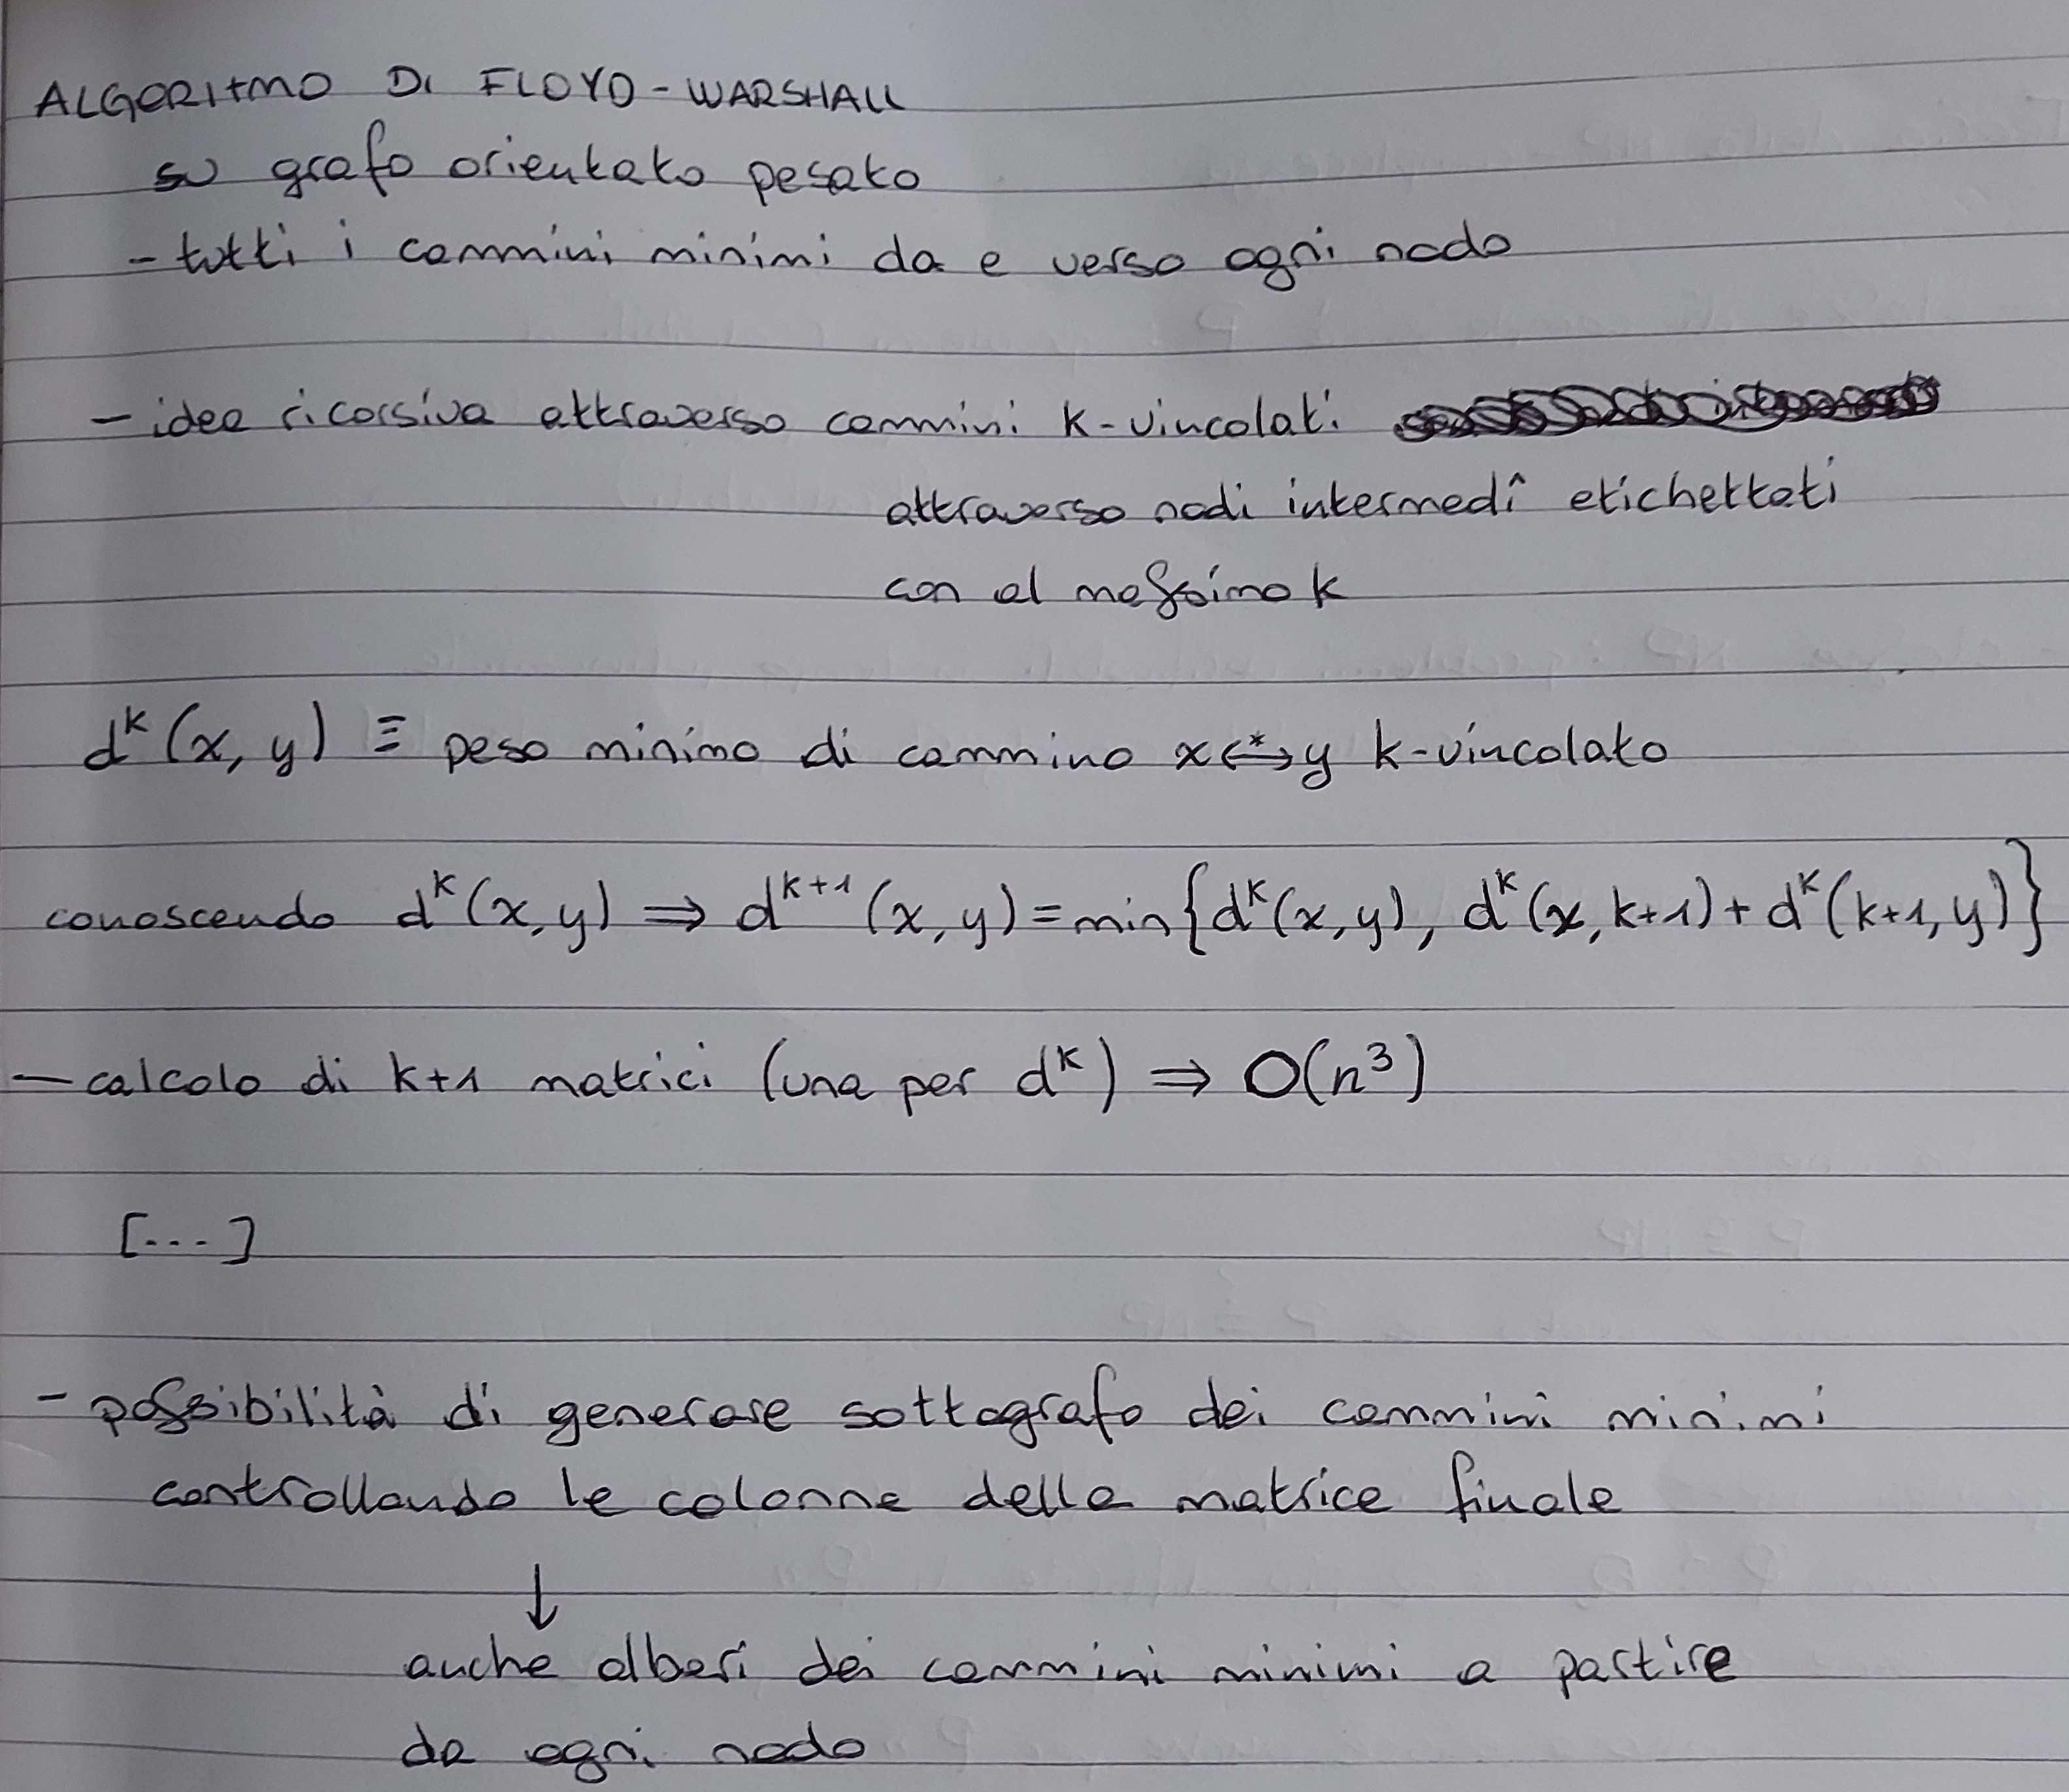 ALGORITMO DI FLOYD-WARSHALL
su grafo orientato pesato
- tutti i cammini minimi da e verso ogni nodo
- idea ricorsiva attraverso cammini k-vincolati
attraverso nodi intermedî etichettati
con al massimo k
dᵏ(x, y) ≡ peso minimo di cammino x ↔* y k-vincolato
conoscendo dᵏ(x, y) ⇒ dᵏ⁺¹(x, y) = min{dᵏ(x, y), dᵏ(x, k+1) + dᵏ(k+1, y)}
- calcolo di k+1 matrici (una per dᵏ) ⇒ O(n³)
[...]
- possibilità di generare sottografo dei cammini minimi
controllando le colonne della matrice finale
↓
anche alberi dei cammini minimi a partire
da ogni nodo